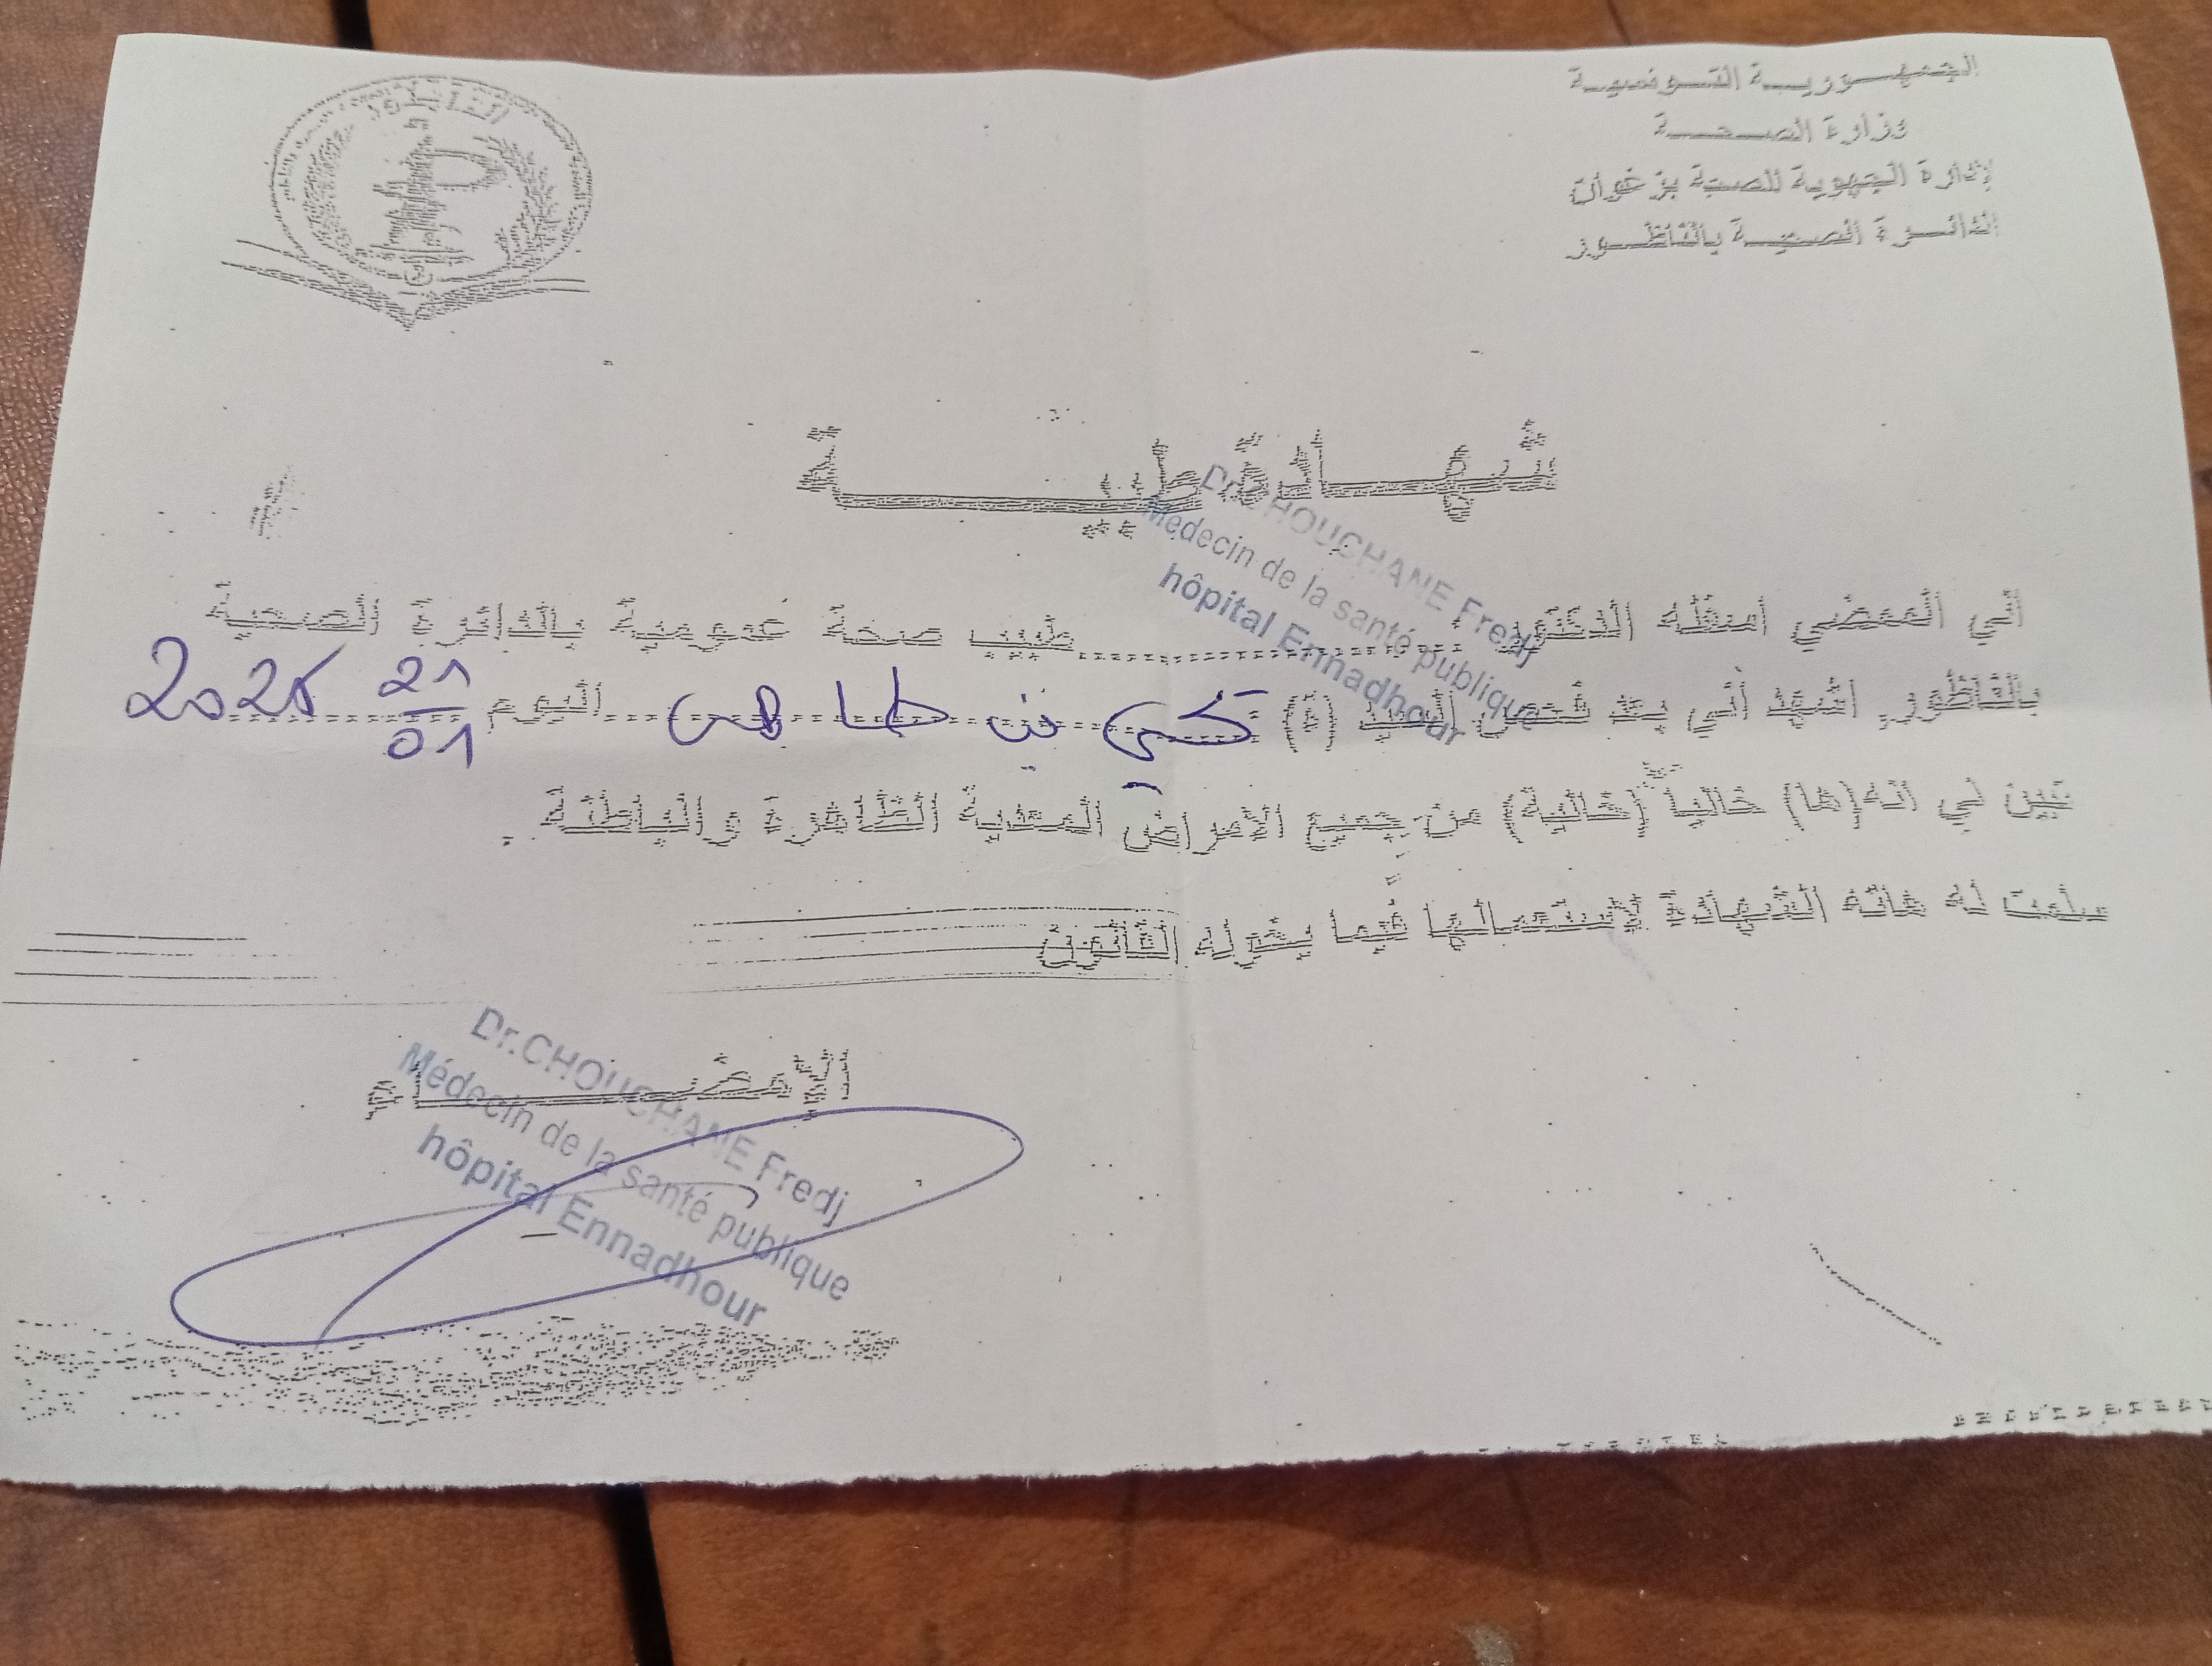 الجمهورية التونسية
وزارة الصحة
الإدارة الجهوية للصحة بزغوان
الدائرة الصحية بالناظور
شهادة طبية
Dr.CHOUCHANE Fredj
Médecin de la santé publique
hôpital Ennadhour
اني الممضي اسفله الدكتور طبيب صحة عمومية بالدائرة الصحية
بالناظور، اشهد أني بعد فحص السيد (ة) بن اليوم 21/01
تبين لي انه(ها) خالياً (خالية) من جميع الامراض المعدية الظاهرة والباطنة .
سلمت له هاته الشهادة لإستعمالها فيما يخوله القانون
الإمضاء
Dr.CHOUCHANE Fredj
Médecin de la santé publique
hôpital Ennadhour